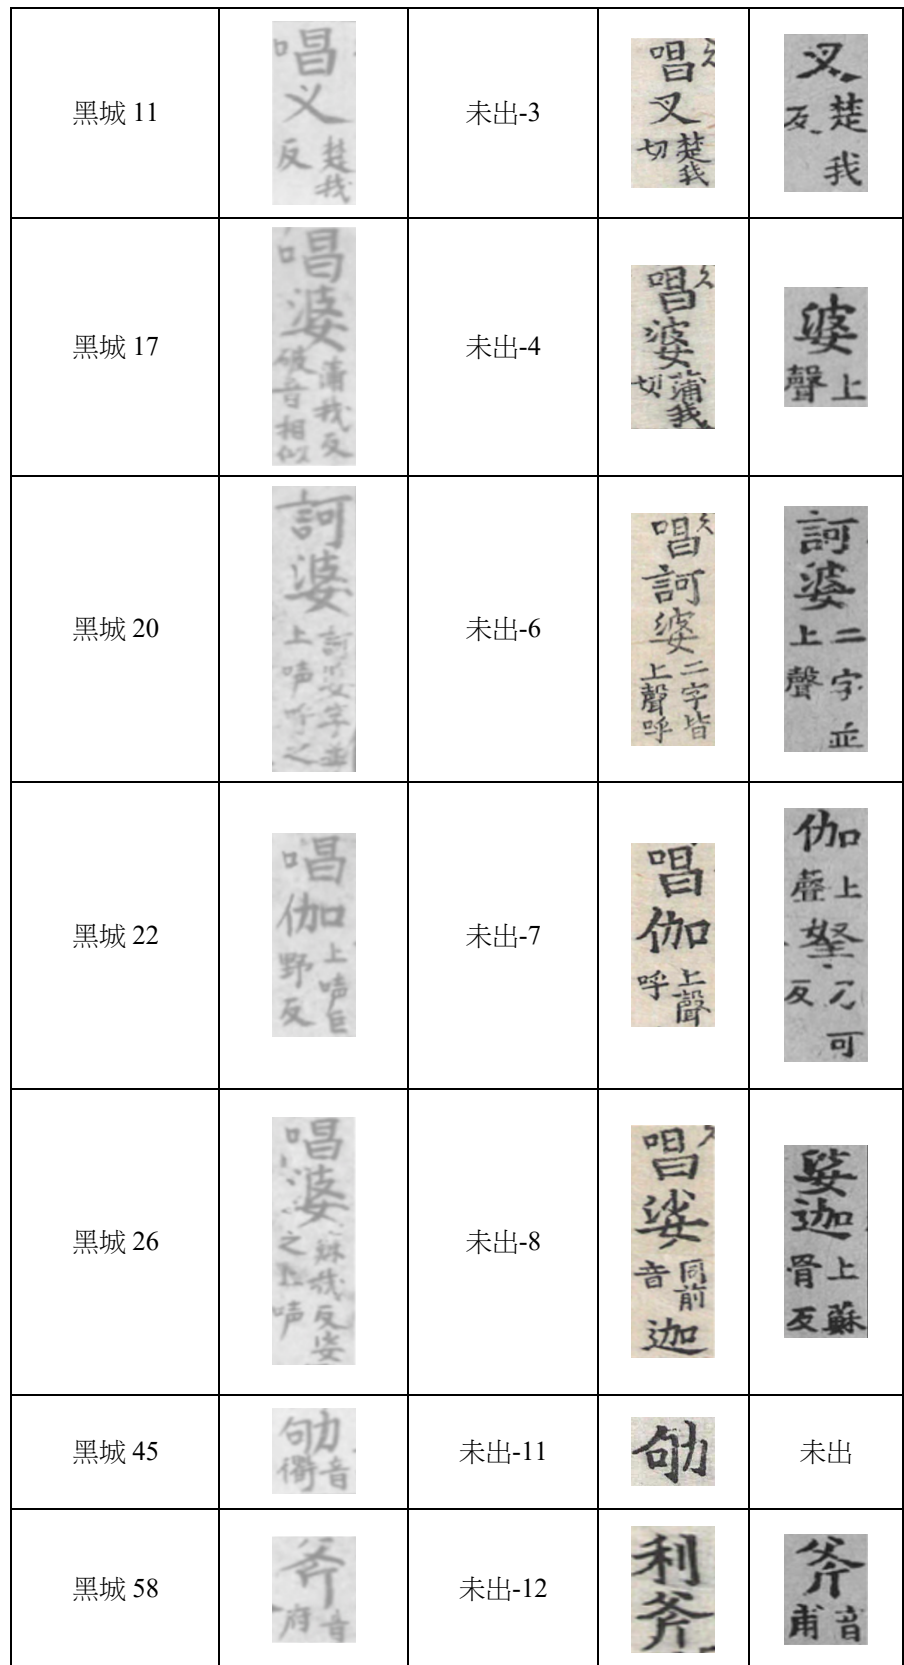 黑城 11
唱叉
楚我
反
未出-3
唱叉
楚我
切
叉
楚我
反
黑城 17
唱婆
蒲我反
破音相似
未出-4
唱婆
蒲我
切
婆
上
聲
黑城 20
訶婆
訶婆字並
上声呼之
未出-6
唱訶婆
二字皆
上聲呼
訶婆
二字並
上聲
黑城 22
唱伽
上声巨
野反
未出-7
唱伽
上聲
呼
伽
上
聲
可
反
黑城 26
唱婆
蘇我反娑
之上声
未出-8
唱娑
同前
音
迦
娑迦
上蘇
骨反
黑城 45
劬
音
衢
未出-11
劬
未出
黑城 58
斧
音
府
未出-12
利斧
斧
音
甫